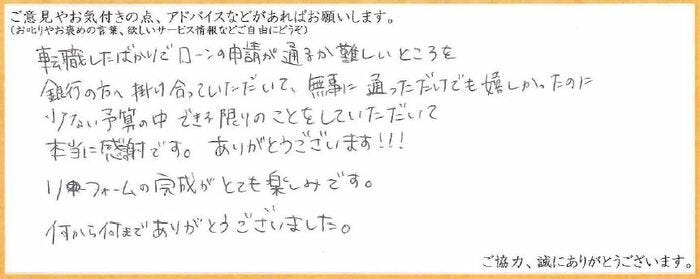 ご意見やお気付きの点、アドバイスなどがあればお願いします。
(お叱りやお褒めの言葉、欲しいサービス情報などご自由にどうぞ)
転職したばかりでローンの申請が通るか難しいところを
銀行の方へ掛け合っていただいて、無事に通っただけでも嬉しかったのに
少ない予算の中できる限りのことをしていただいて
本当に感謝です。ありがとうございます!!!
リフォームの完成がとても楽しみです。
何から何までありがとうございました。
ご協力、誠にありがとうございます。